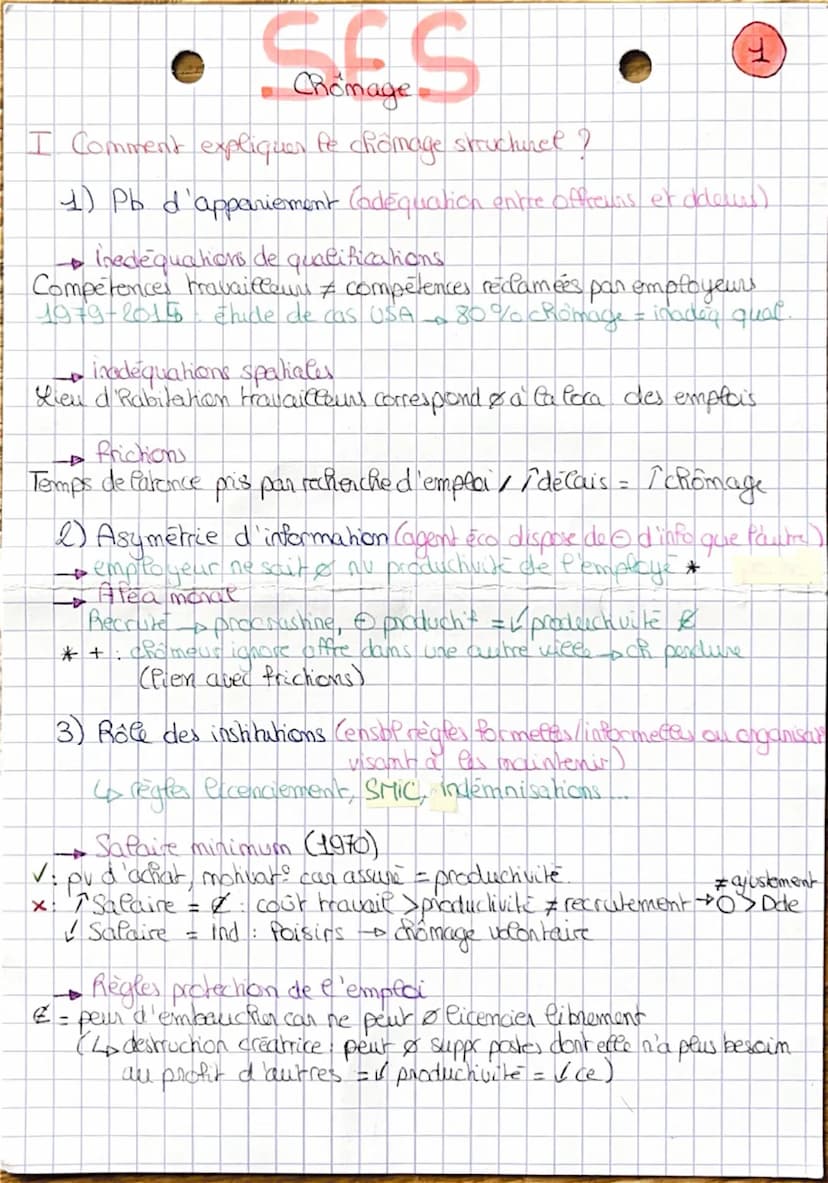 SES
1
Chômage
I Comment expliquer le chômage structurel ?
1) Pb d'appariement (adéquation entre offreurs et ddeurs)
→ inadéquations de qualifications
Compétences travailleurs ≠ compétences réclamées par employeurs
1979-2015 : étude de cas USA → 80% chômage = inadéq qual.
→ inadéquations spatiales
Lieu d'habitation travailleurs correspond ∅ à la loca. des emplois
→ frictions
Temps de latence pris par recherche d'emploi / ↑délais = ↑chômage
2) Asymétrie d'information (agent éco dispose de ⊖ d'info que l'autre)
→ employeur ne sait ∅ nv productivité de l'employé *
→ Aléa moral
Recruté → procrastine, ⊖ product° = ↓ productivité E
* + : chômeur ignore offre dans une autre ville → ch perdure
(lien avec frictions)
3) Rôle des institutions (ensbl règles formelles/informelles ou organisat
visant à les maintenir)
↳ règles licenciement, SMIC, indémnisations ...
→ Salaire minimum (1970)
✓: pv d'achat, motivat° car assuré = productivité.
≠ ajustement
x: ↑Salaire = E : coût travail > productivité ≠ recrutement → O > Dde
↓ Salaire = ind : loisirs → chômage volontaire
→ Règles protection de l'emploi
E = peur d'embaucher car ne peut ∅ licencier librement
(↳ destruction créatrice : peut ∅ suppr postes dont elle n'a plus besoin
au profit d'autres = ↓ productivité = ↓ce)